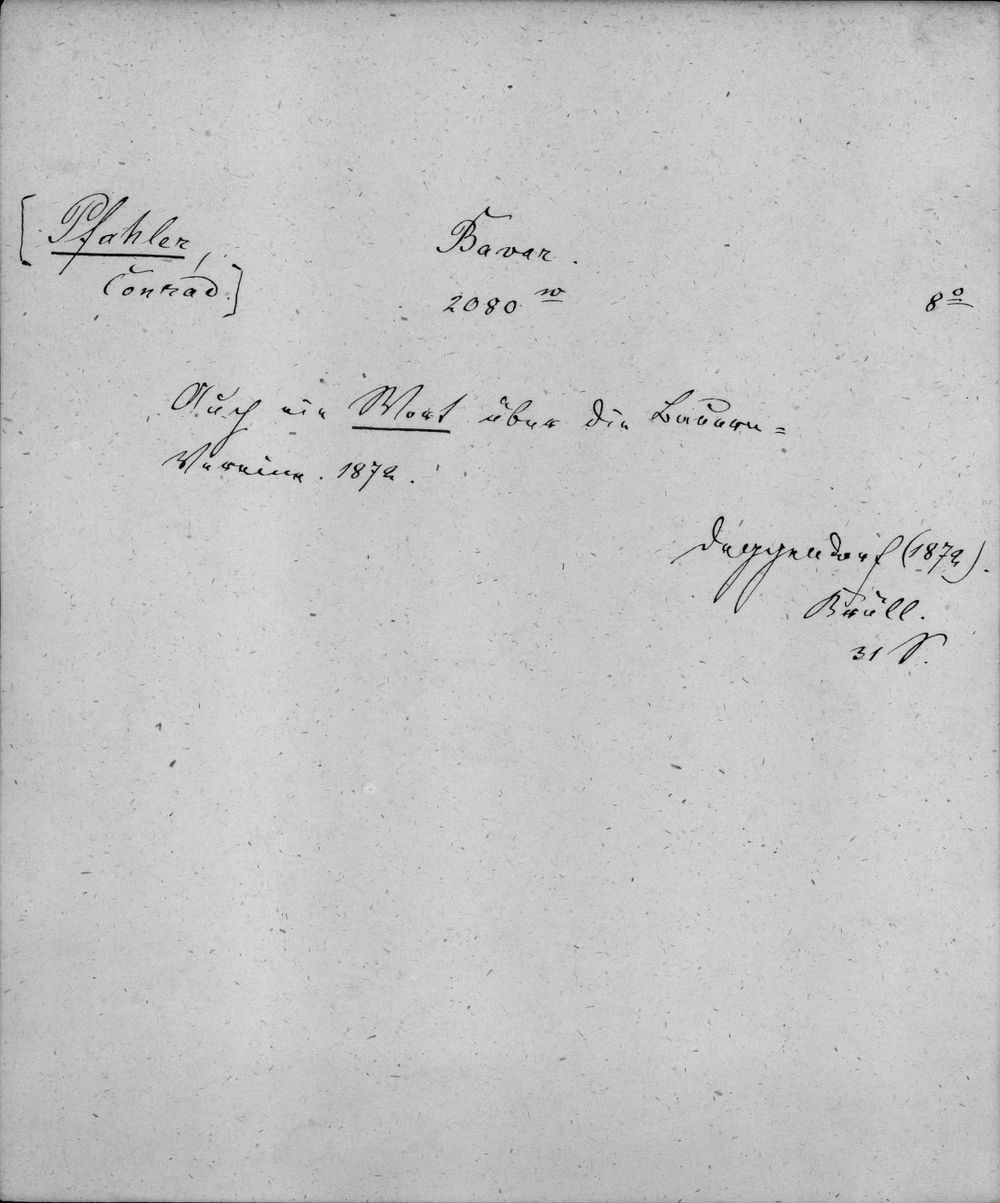 [Pfahler,
Conrad.]
Bavar.
2080 w
8o
Auch ein Wort über die Bauern=
Vereine. 1872.
Deggendorf (1872).
Krüll.
31 S.